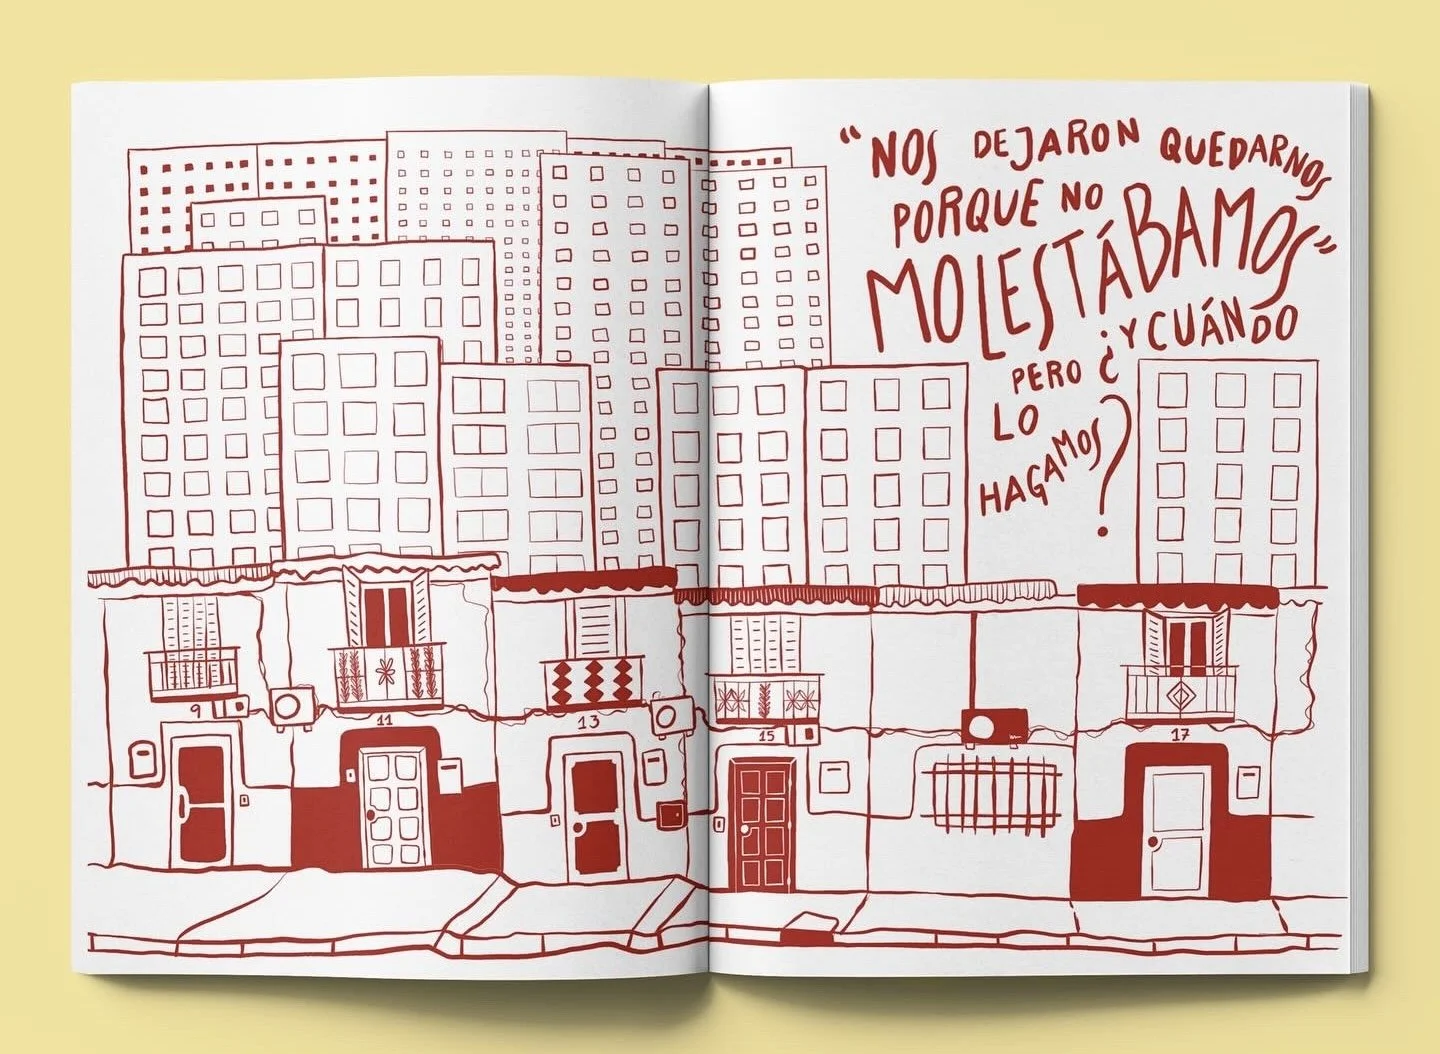 "NOS DEJARON QUEDARNOS
PORQUE NO
MOLESTÁBAMOS"
PERO ¿Y CUÁNDO
LO
HAGAMOS?
9
11
13
15
17